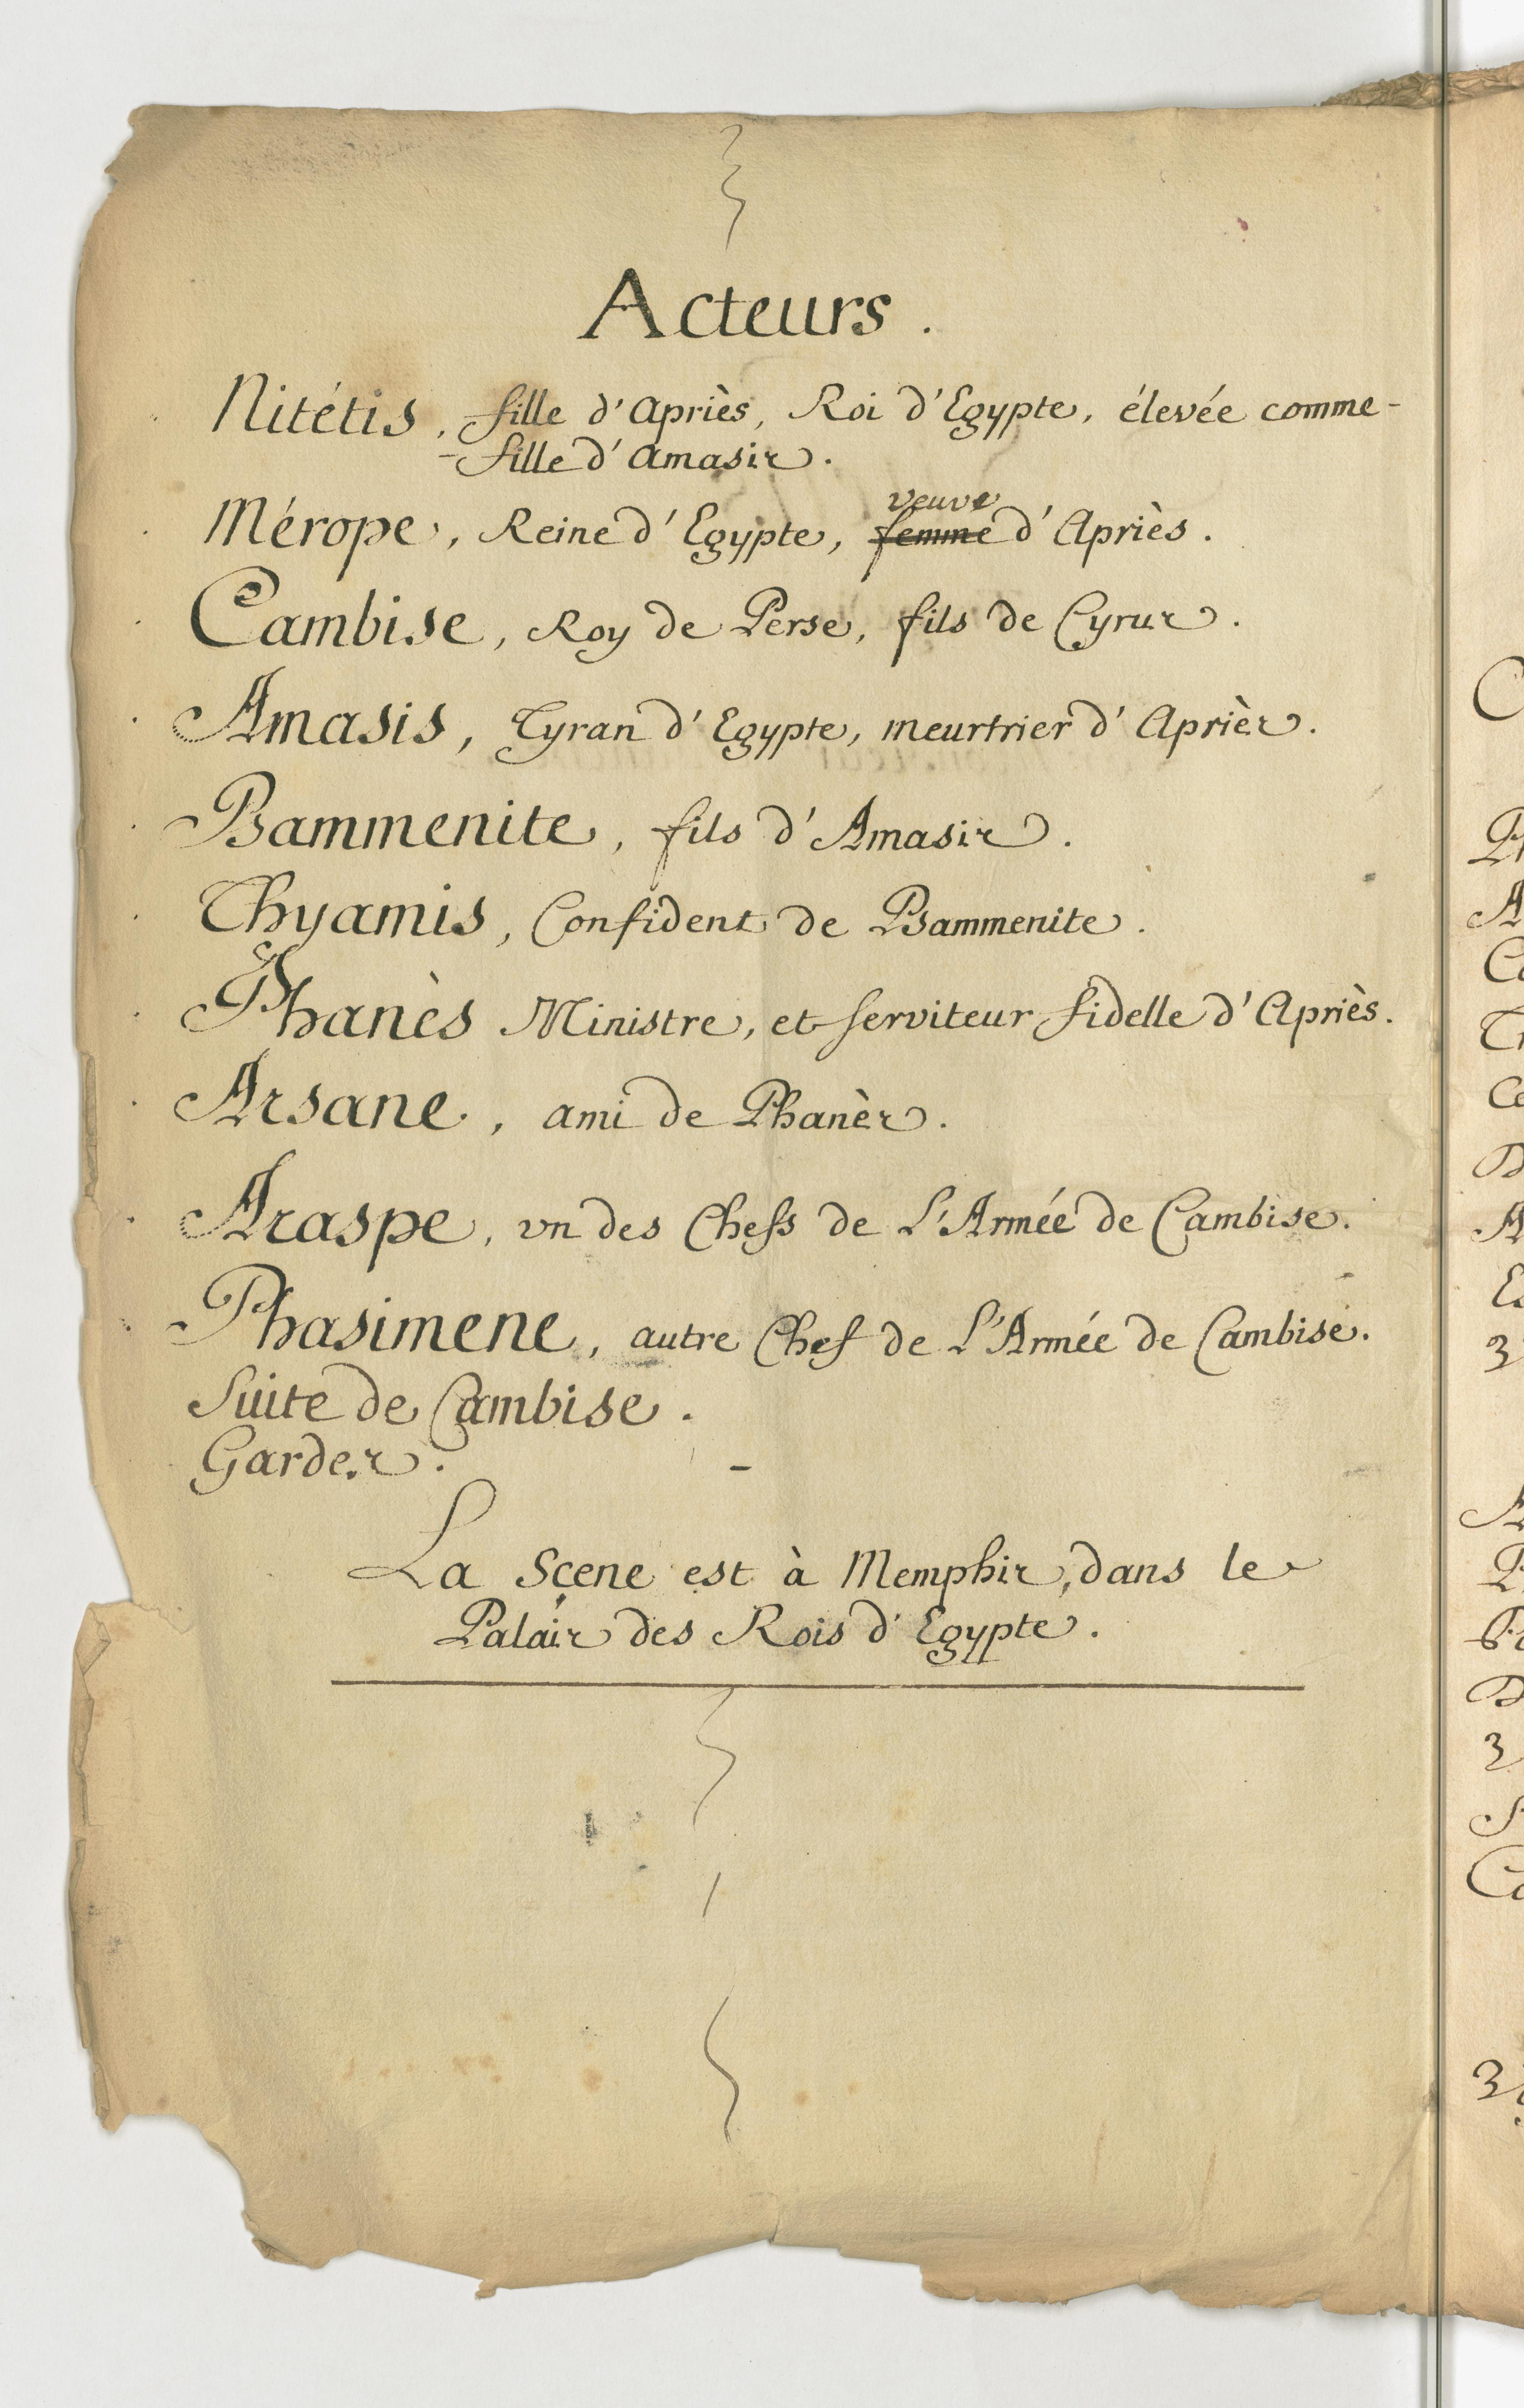 Acteurs.
Nitétis, fille d'Apriès, Roi d'Egypte, élevée comme
fille d'Amasis.
veuve
Mérope, Reine d'Egypte, femme d'Apriès.
Cambise, Roy de Perse, fils de Cyrus.
Amasis, Tyran d'Egypte, meurtrier d'Apriès.
Psammenite, fils d'Amasis.
Thyamis, Confident de Psammenite.
Phanès Ministre, et serviteur fidelle d'Apriès.
Arsane, ami de Phanès.
Araspe, vn des Chefs de L'Armée de Cambise.
Phasimene, autre Chef de L'Armée de Cambise.
Suite de Cambise.
Gardes.
La Scene est à Memphis, dans le
Palais des Rois d'Egypte.